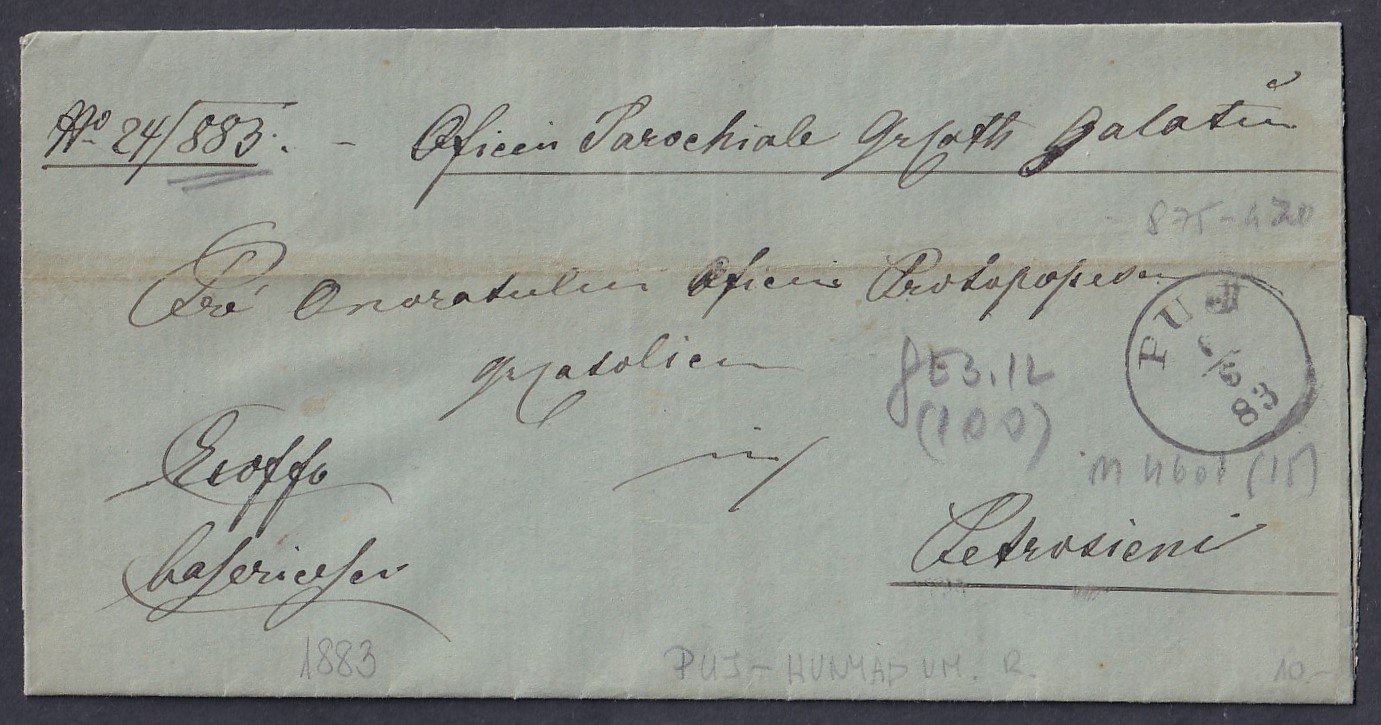 No 24/883. – Oficiu Parochiale gr cath Galatiŭ
875-420
Pré Onoratului Oficiu Protopopescu
gr catolicu
PUJ
6/5
83
(100)
Exoffo
in
M 460d (15)
basericescu
Petrosieni
1883
PUJ-HUNYAD VM. R.
10.-